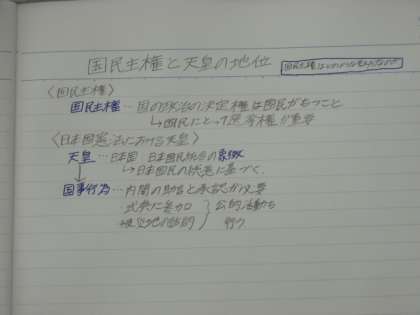 国民主権と天皇の地位 国民主権はどのようなものなのか
〈国民主権〉
国民主権…国の政治の決定権は国民がもつこと
↳国民にとって選挙権が重要
〈日本国憲法における天皇〉
天皇…日本国 日本国民統合の象徴
↓ ↳日本国民の総意に基づく。
国事行為…内閣の助言と承認が必要
・式典に参加
・被災地の訪問 } 公的活動も行う